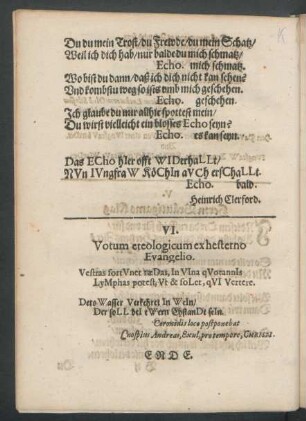 Du du mein Trost/ du Frewde/ du mein Schatz/
Weil ich dich hab/ nur balde du mich schmatz/
Echo. mich schmatz.
Wo bist du dann/ daß ich dich nicht kan sehen?
Vnd kombstu weg so ists umb mich geschehen.
Echo. geschehen.
Ich glaube du nur allhie spottest mein/
Du wirst vielleicht ein blosses Echo seyn?
Echo. es kan seyn.
Das ECho hIer offt WIDerhaLLt/
NVn IVngfraW KöChIn aVCh erSChaLLt.
Echo. bald.
Heinrich Clerford.
VI.
Votum ereologicum ex hesterno
Evangelio.
Vestras fortVnet tæDas, In VIna qVotannIs
LyMphas potest, Vt & soLet, qVI Vertere.
Der Wasser Verkehret In WeIn/
Der soLL beI eWern EhstanDt seIn.
Coronidis loco postponebat
Andreas,
ENDE.